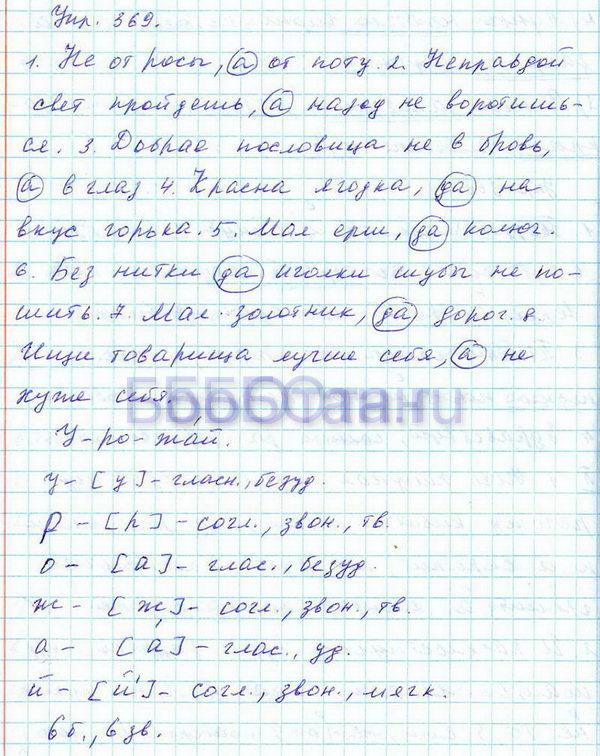 Упр. 369.
1. Не от росы, а от поту. 2. Неправдой
свет пройдешь, а назад не воротишь-
ся. 3. Добрая пословица не в бровь,
а в глаз 4. Красна ягодка, да на
вкус горька. 5. Мал ерш, да колюч.
6. Без нитки да иголки шубы не по-
шить. 7. Мал золотник, да дорог. 8.
Ищи товарища лучше себя, а не
хуже себя.
У-ро-жай.
у - [у] - гласн., безуд.
р - [р] - согл., звон., тв.
о - [а] - глас., безуд.
ж - [ж] - согл., звон., тв.
а - [а́] - глас., уд.
й - [й'] - согл., звон., мягк.
6 б., 6 зв.